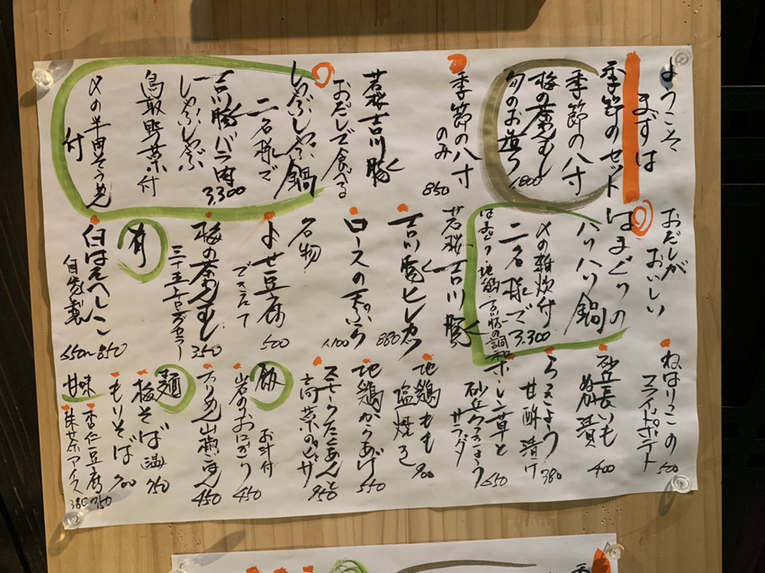 ようこそ
まずは
季節のセット
季節の八寸
梅の茶わんむし
旬のお造り
1,800
季節の八寸
のみ
850
若桜吉川豚
おだしで食べる
しゃぶしゃぶ鍋
二名様で
吉川豚バラ肉
3,300
しゃぶしゃぶ
鳥取野菜付
〆の半田そうめん
付
おだしが
おいしい
はまぐりの
ハリハリ鍋
〆の雑炊付
二名様で3,300
はまぐり 地鶏 吉川豚の調和
若桜 吉川豚
吉川豚ヒレカツ
880
ロースの天ぷら
1,100
名物
よせ豆腐
できたて
500
梅の茶わんむし
350
有
白ばえへしこ
自家製
550 850
ねばりっこの
フライドポテト
500
砂丘長いも
400
らっきょう
甘酢漬け
380
ホーレン草と
砂丘らっきょう
サラダ
550
地鶏もも
塩焼き
900
地鶏からあげ
550
スモークたくあんと
高菜のピザ
950
飯
お汁付
岩のりおにぎり
450
450
麺
梅そば 温
750
もりそば
700
甘味
杏仁豆腐
350
抹茶アイス
380